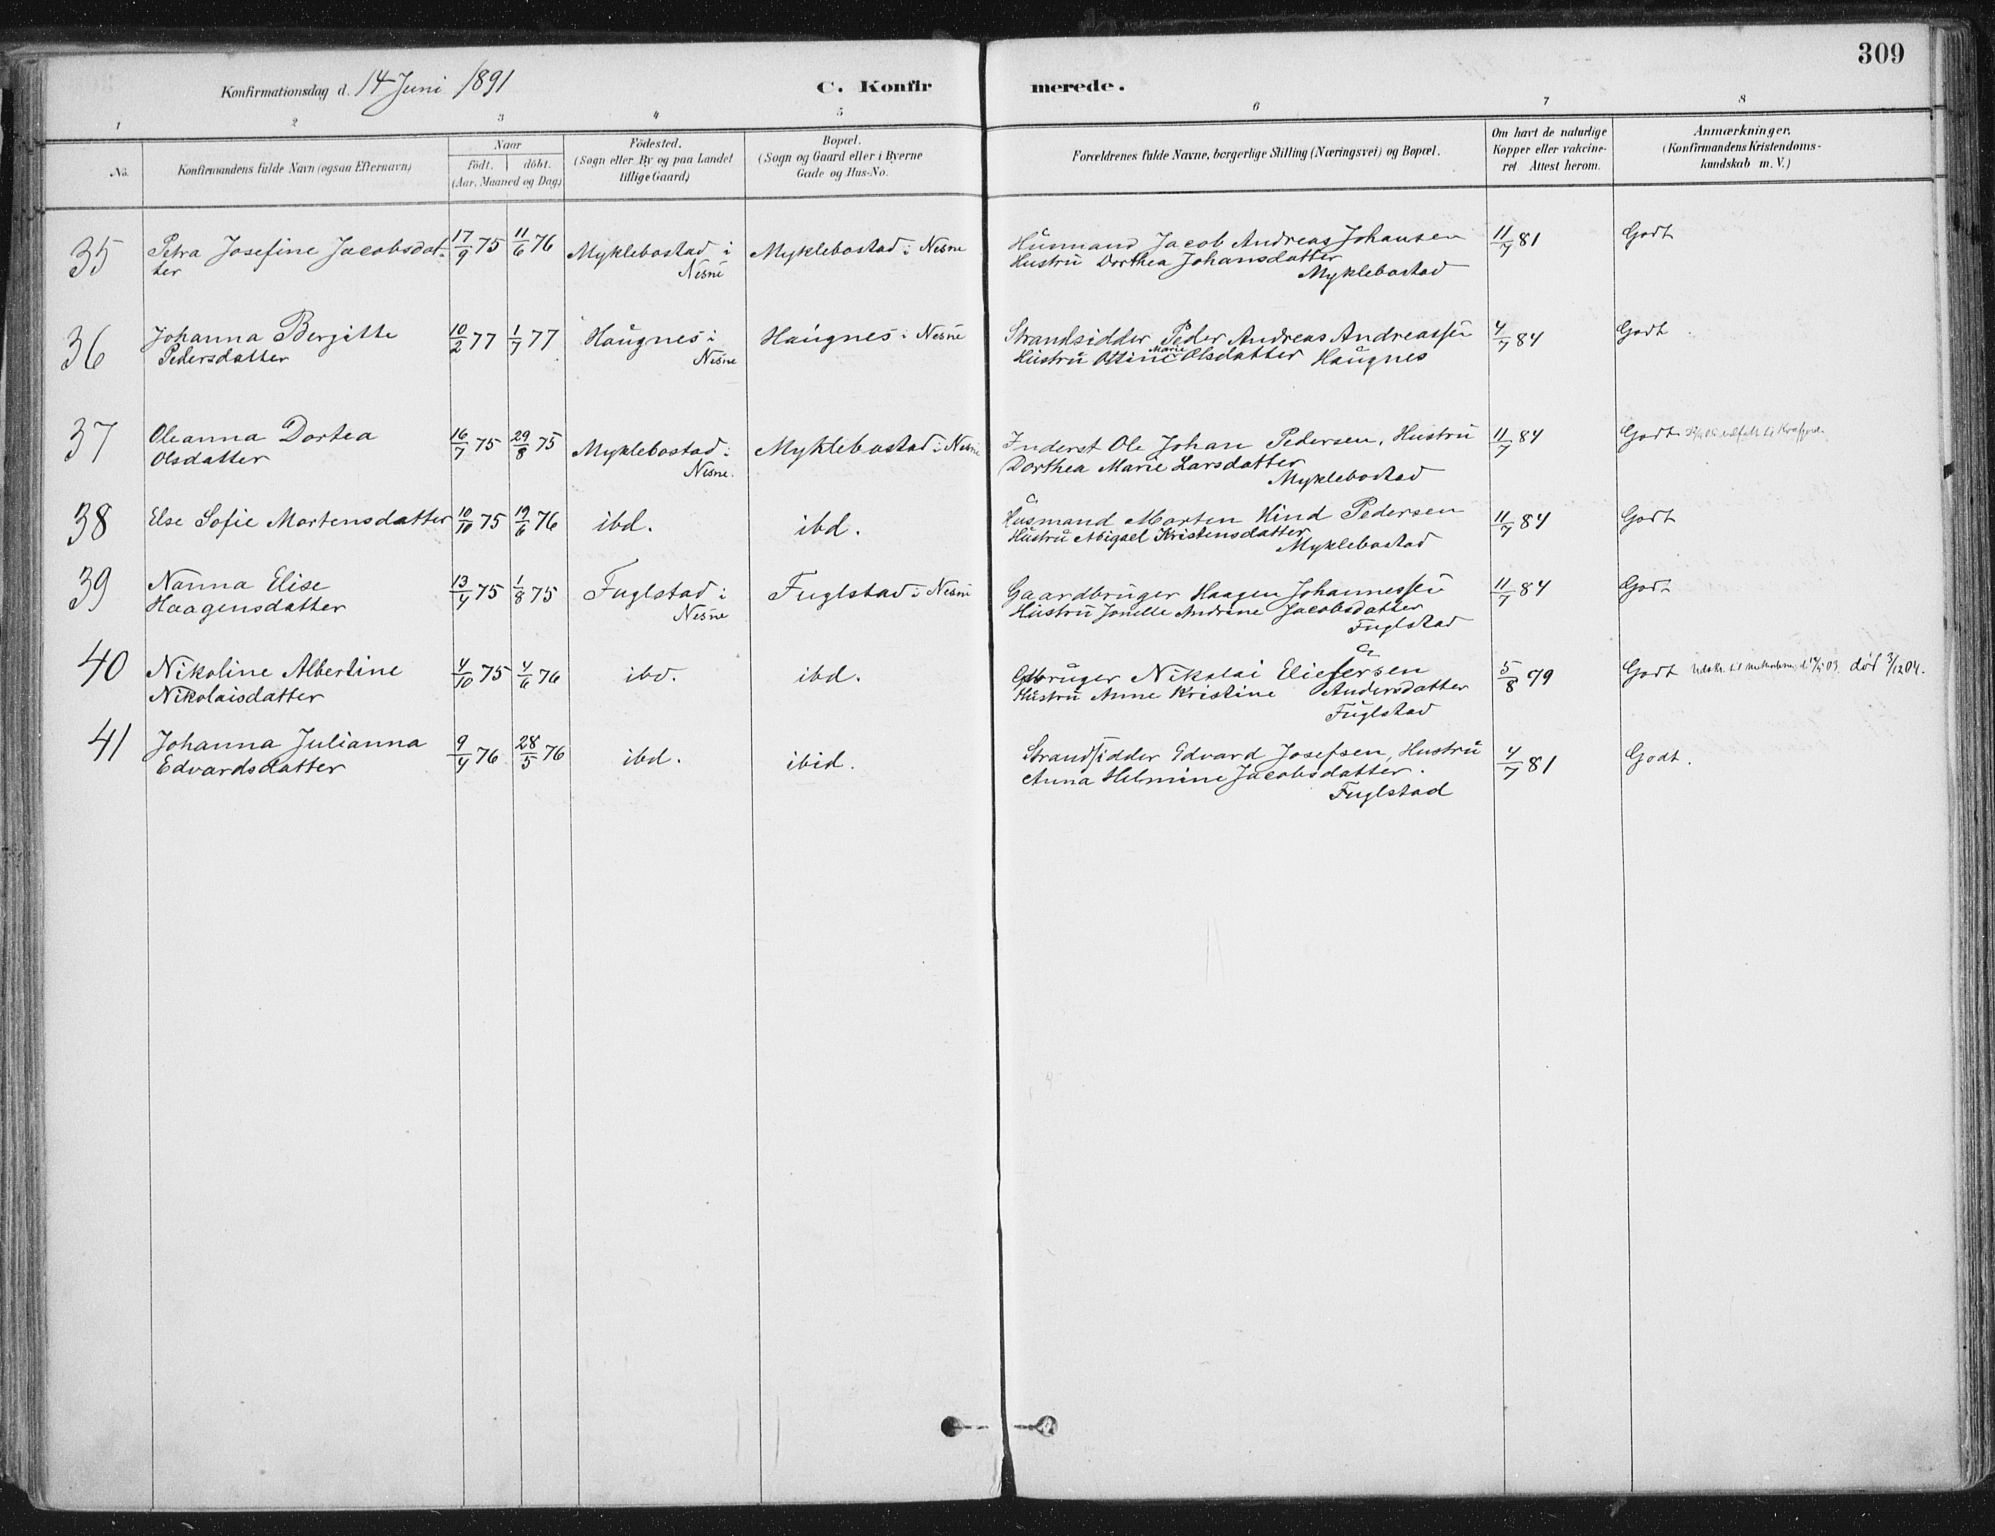 309
Konfirmationsdag d. 14 Juni 1891
C. Konfirmerede.
1 2 3 4 5 6 7 8
No.
Konfirmandens fulde Navn (ogsaa Efternavn)
Naar
födt. döbt.
(Aar, Maaned og Dag)
Födested.
(Sogn eller By og paa Landet
tillige Gaard)
Bopæl.
(Sogn og Gaard eller i Byerne
Gade og Hus-No.
Forældrenes fulde Navne, borgerlige Stilling (Næringsvei) og Bopæl.
Om havt de naturlige
Kopper eller vakcine-
ret Attest herom.
Anmærkninger.
(Konfirmandens Kristendoms-
kundskab m. V.)
35 Petra Josefine Jacobsdat- 17/9 75 11/6 76 Myklebostad i Myklebostad i Nesne Husmand Jacob Andreas Johansen 11/7 81 Godt
ter Nesne Hustru Dorthea Johansdatter
Myklebostad
36 Johanna Bergitte 10/2 77 1/7 77 Haugnes i Haugnes i Nesne Strandsidder Peder Andreas Andreassen 4/7 84 Godt.
Pedersdatter Nesne Hustru Ottine Marie Olsdatter Haugnes
37 Oleanna Dortea 16/7 75 29/8 75 Myklebostad i Myklebostad i Nesne Inderst Ole Johan Pedersen, Hustru 11/7 84 Godt
Olsdatter Nesne. Dorthea Marie Larsdatter
Myklebostad
38 Else Sofie Mortensdatter 10/10 75 19/6 76 ibd. ibd. Husmand Morten Hind Pedersen 11/7 84 Godt
Hustru Abigael Kristensdatter
Myklebostad
39 Nanna Elise 13/4 75 1/8 75 Fuglstad i Fuglstad i Nesne Gaardbruger Haagen Johannessen 11/7 84 Godt
Haagensdatter Nesne Hustru Jonelle Andrine Jacobsdatter
Fuglstad
40 Nikoline Albertine 4/10 75 4/6 76 ibd. ibd. Gbruger Nikolai Eliesersen 5/8 79 Godt død 3/12 04.
Nikolaisdatter Hustru Anne Kristine Andersdatter
Fuglstad
41 Johanna Julianna 9/4 76 28/5 76 ibd. ibid. Strandsidder Edvard Josefsen, Hustru 4/7 81 Godt.
Edvardsdatter Anna Helmine Jacobsdatter.
Fuglstad